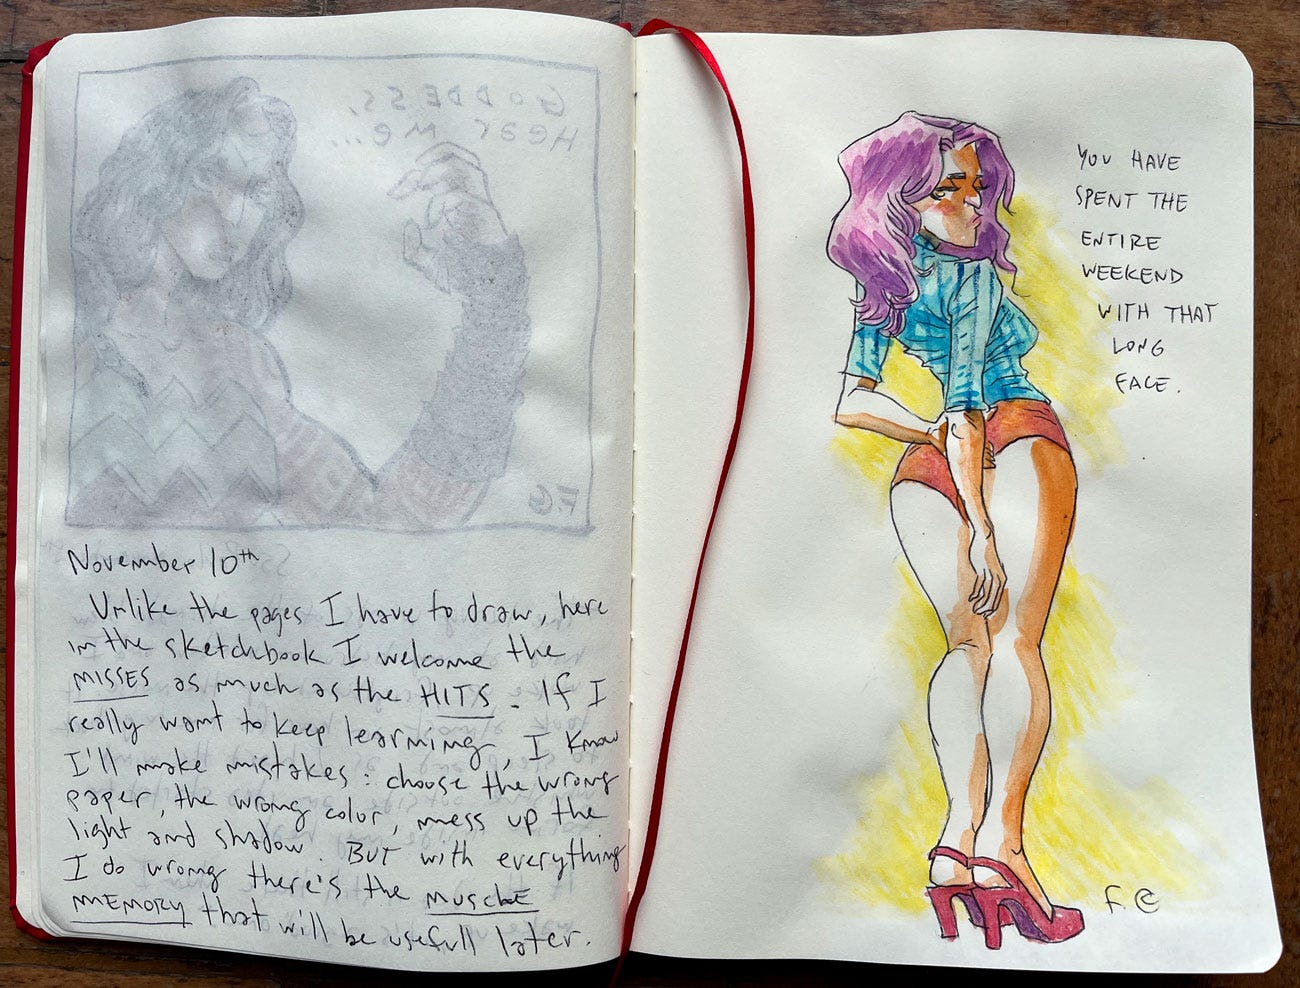 GODDESS,
HEAR ME...
F.G
November 10th
Unlike the pages I have to draw, here
in the sketchbook I welcome the
MISSES as much as the HITS. If I
really want to keep learning, I know
I'll make mistakes: choose the wrong
paper, the wrong color, mess up the
light and shadow. BUT with everything
I do wrong there's the MUSCLE
MEMORY that will be usefull later.
YOU HAVE
SPENT THE
ENTIRE
WEEKEND
WITH THAT
LONG
FACE.
F. G